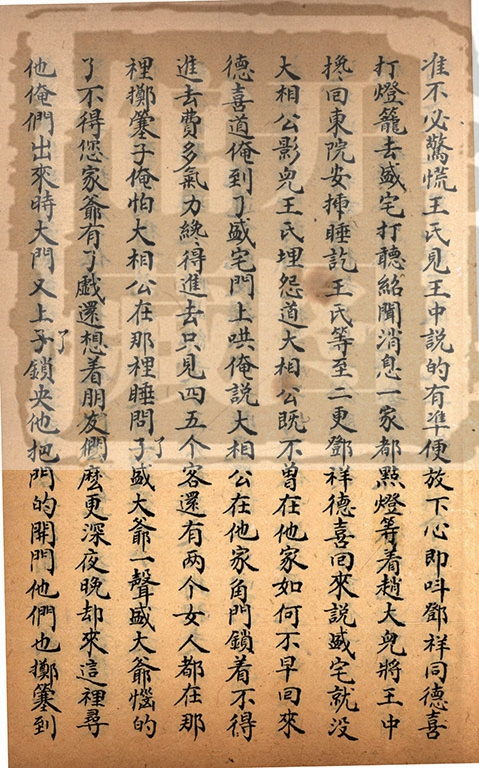 准不必驚慌王氏見王中說的有準便放下心即叫鄧祥同德喜
打燈籠去盛宅打聽紹聞消息一家都點燈等着趙大兒將王中
攙回東院安揷睡訖王氏等至二更鄧祥德喜回來說盛宅就没
大相公影兒王氏埋怨道大相公既不曾在他家如何不早回來
德喜道俺到了盛宅門上哄俺說大相公在他家角門鎖着不得
進去費多氣力纔得進去只見四五个客還有两个女人都在那
裡擲簺子俺怕大相公在那裡睡問了盛大爺一聲盛大爺惱的
了不得您家爺有了戲還想着朋友們麽更深夜晚却來這裡尋
他俺們出來時大門又上了鎖央他把門的開門他們也擲簺到